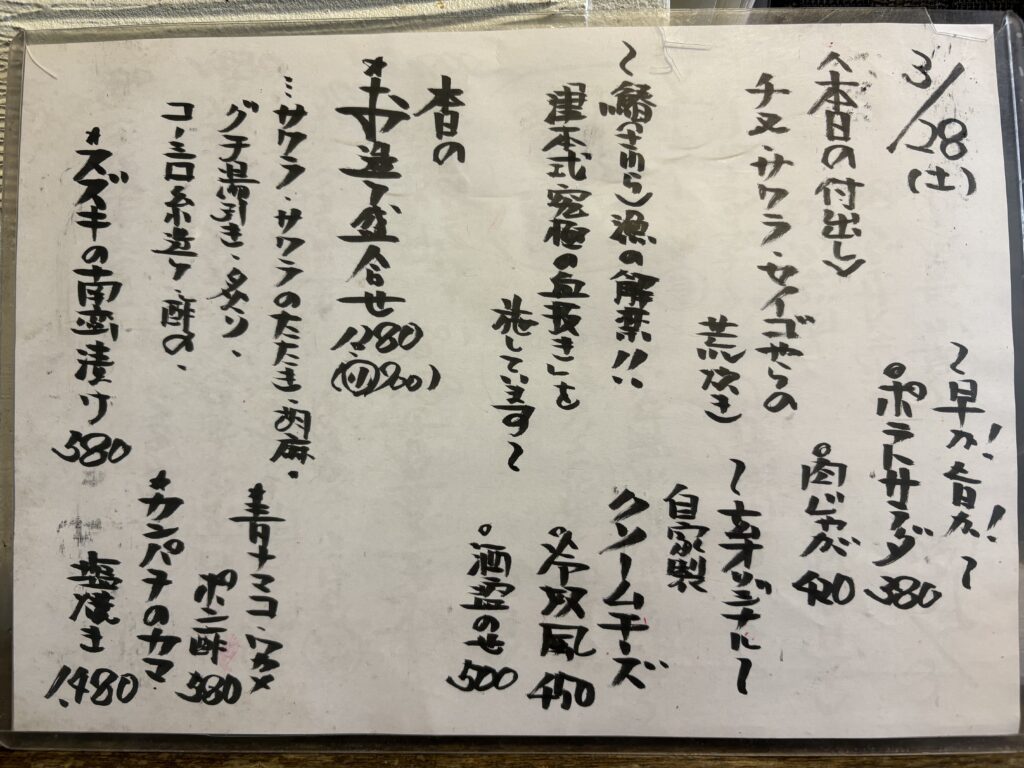 3/28(土)
〈本日の付出し〉
チヌ・サワラ・セイゴやらの
荒炊き
〜鰆(さわら)漁の解禁!!
津本式究極の血抜き」を
施しています〜
本日の
*お造り盛合せ
1,280
(㋷900)
…サワラ・サワラのたたき・胡麻。
グチ湯引き・炙り、
コーミロ糸造り・酢の、
*スズキの南蛮漬け 580
〜早カ!旨カ!〜
○ポテトサラダ 380
○肉じゃが 420
〜玄オリジナル〜
自家製
クリームチーズ
○冷奴風 450
○酒盗のせ 500
*青ナマコ・ワカメ
ポン酢 580
*カンパチのカマ
塩焼き 1,480